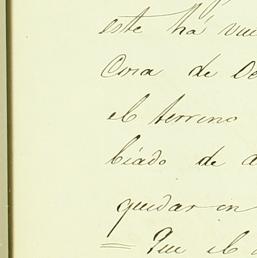 este há vue
Cosa de De
el terreno
biado de a
quedar en
= Que el